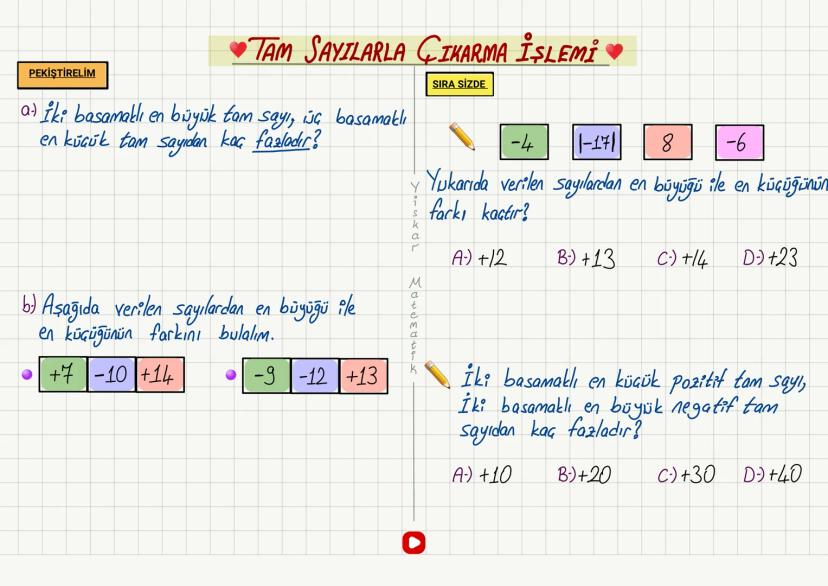 TAM SAYILARLA ÇIKARMA İŞLEMİ
PEKİŞTİRELİM
a-) İki basamaklı en büyük tam sayı, üç basamaklı
en küçük tam sayıdan kaç fazladır?
b-) Aşağıda verilen sayılardan en büyüğü ile
en küçüğünün farkını bulalım.
+7 -10 +14
-9 -12 +13
Yıskar Matematik
SIRA SİZDE
-4 |-17| 8 -6
Yukarıda verilen sayılardan en büyüğü ile en küçüğünün
farkı kaçtır?
A-) +12 B-) +13 C-) +14 D-) +23
İki basamaklı en küçük pozitif tam sayı,
İki basamaklı en büyük negatif tam
sayıdan kaç fazladır?
A-) +10 B-) +20 C-) +30 D-) +40